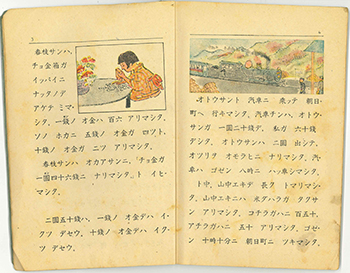 春枝サンハ、
チョ金箱ガ
イッパイニ
ナッタノデ
アケテ ミマ
シタ。一銭ノ オ金ハ 百六 アリマシタ。
ソノ ホカニ 五銭ノ オ金ガ 四ツト、
十銭ノ オ金ガ 二ツ アリマシタ。
春枝サンハ オカアサンニ、「チョ金ガ
一圓四十六銭ニ ナリマシタ。」ト イヒ
マシタ。
二圓五十銭ハ、一銭ノ オ金デハ イク
ツ デセウ。十銭ノ オ金デハ イク
ツ デセウ。
オトウサント 汽車ニ 乗ッテ 朝日
町ヘ 行キマシタ。汽車チンハ、オトウ
サンガ 一圓二十銭デ、私ガ 六十銭
デシタ。オトウサンハ 二圓 出シテ、
オツリヲ オモラヒニ ナリマシタ。汽
車ハ ゴゼン 八時ニ ハッ車シマシタ。
ト中、山中エキデ 長ク トマリマシ
タ。山中エキニハ 米ダハラガ タクサ
ン アリマシタ。コチラガハニ 百五十、
アチラガハニ 五十 アリマシタ。ゴゼ
ン 十時十分ニ 朝日町ニ ツキマシタ。